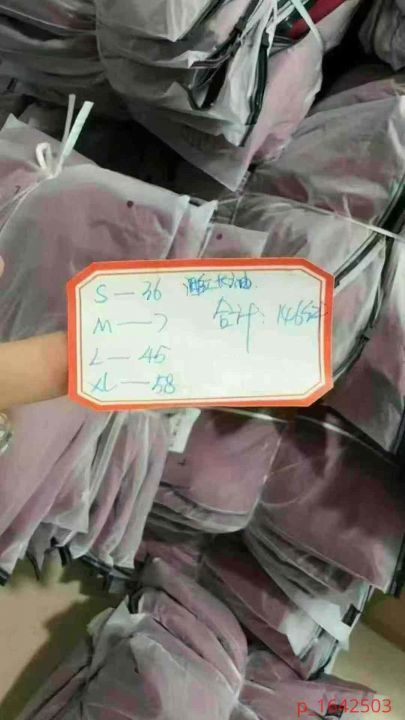 S — 36 酒红
M — 7 合计:146
L — 45
XL — 58
p_1642503